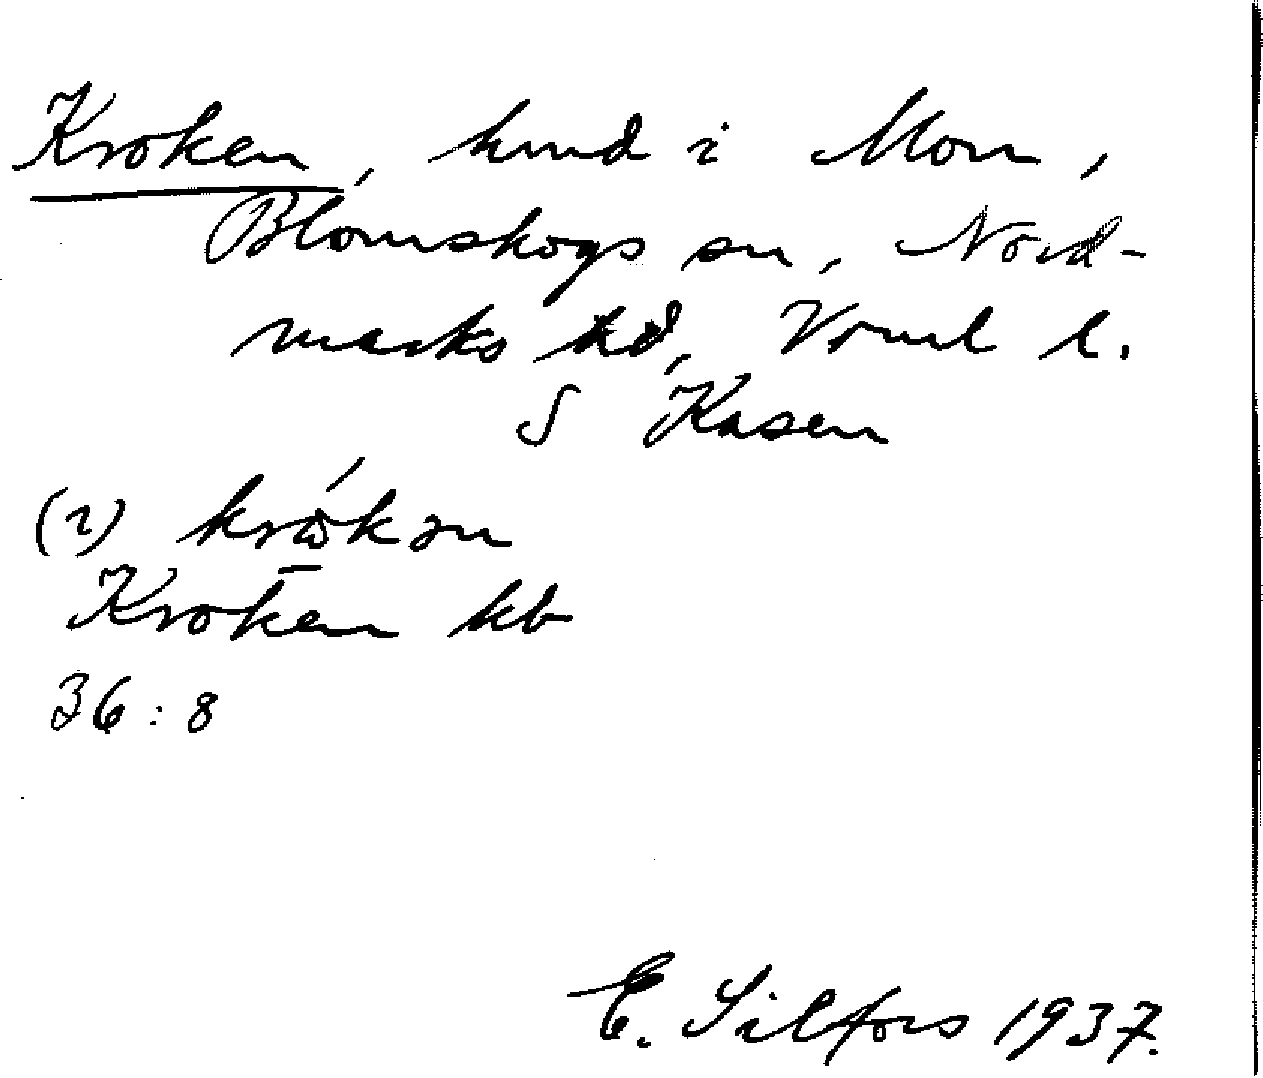 Kroken, hmd i Mon,
Blomskogs sn, Nord-
marks hd, Vrml l.
S Kasen
(2) krókən
Kroken kb
36:8
E. Silfors 1937.